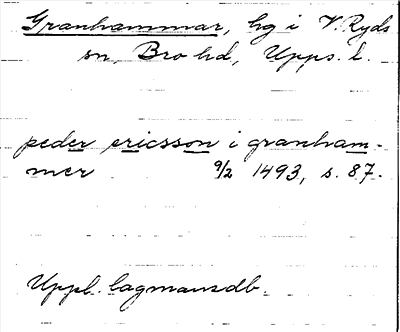 Granhammar, hg i V. Ryds
sn, Bro hd, Upps. l.
peder ericsson i granham-
mer 9/2 1493, s. 87.
Uppl. lagmansdb.